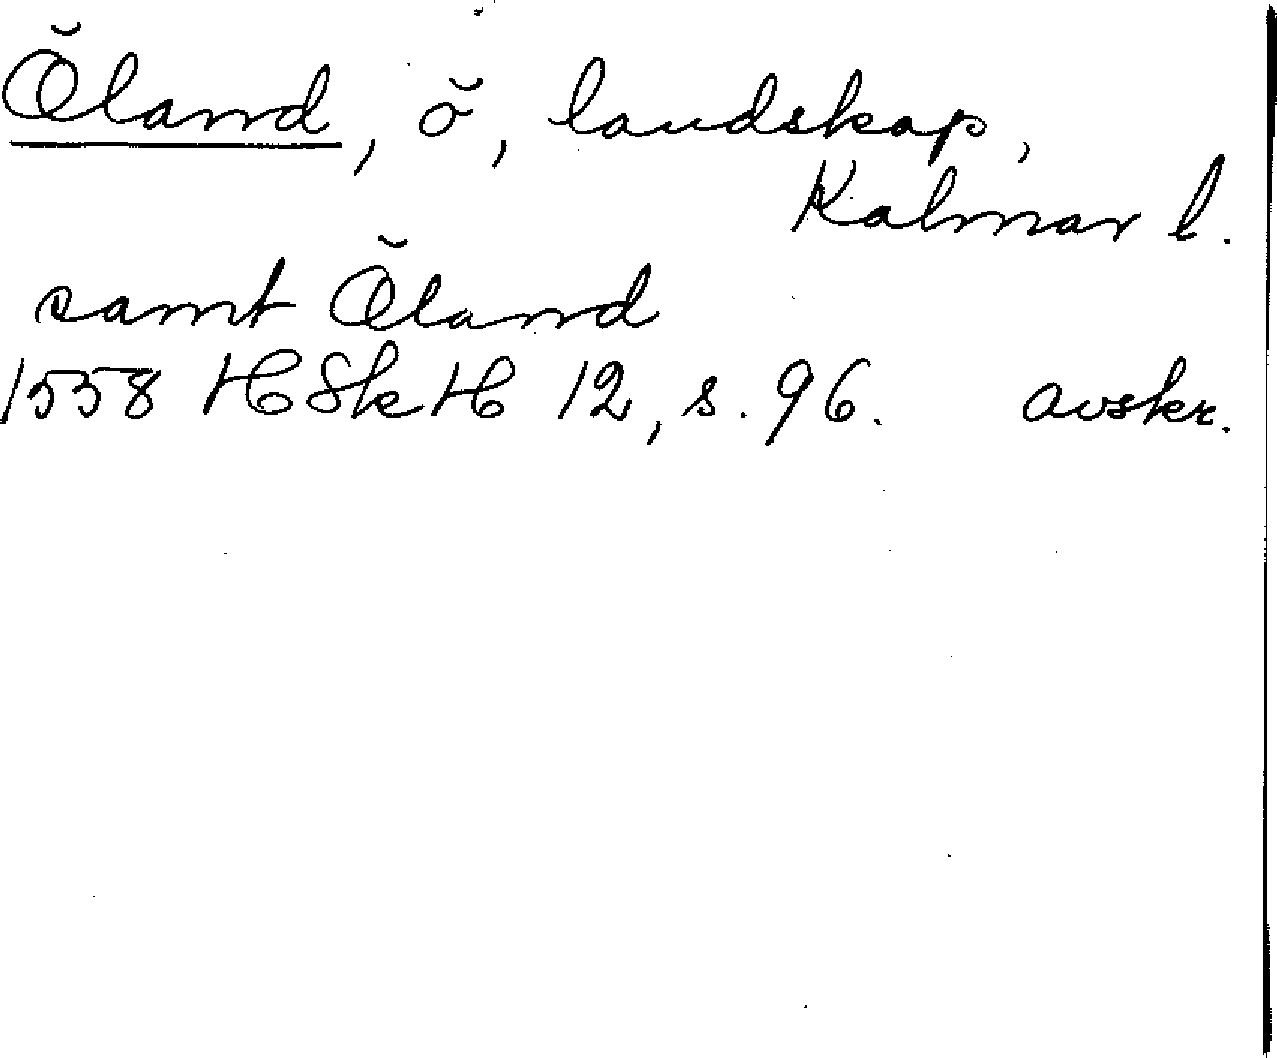 Öland, ö, landskap,
Kalmar l.
samt Öland
1558 HSkH 12, s. 96. avskr.